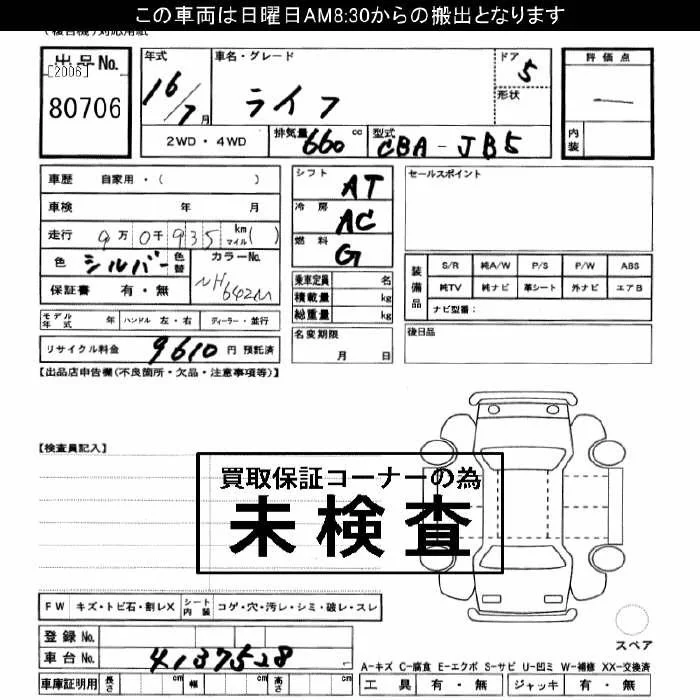 この車両は日曜日AM8:30からの搬出となります
出品No.
[2006]
80706
年式
16/7月
車名・グレード
ライフ
ドア
5
形状
評価点
―
内装
2WD・4WD
排気量 660 cc
型式 CBA-JB5
車歴 自家用・( )
車検 年 月
走行 9万0千935 km マイル( )
色 シルバー 色替
カラーNo. NH642M
保証書 有・無
モデル年式 年 ハンドル 左・右 ディーラー・並行
リサイクル料金 9610 円 預託済
シフト AT
冷房 AC
燃料 G
乗車定員 名
積載量 kg
総重量 kg
名変期限
月 日
セールスポイント
装備品
S/R 純A/W P/S P/W ABS
純TV 純ナビ 革シート 外ナビ エアB
ナビ型番:
後日品
【出品店申告欄(不良箇所・欠品・注意事項等)】
【検査員記入】
買取保証コーナーの為
未検査
FW キズ・トビ石・割レX シート内装 コゲ・穴・汚レ・シミ・破レ・スレ
登録No.
車台No. 4137528
車庫証明用 長さ cm 幅 cm 高さ cm
スペア
A-キズ C-腐食 E-エクボ S-サビ U-凹ミ W-補修 XX-交換済
工具 有・無 ジャッキ 有・無